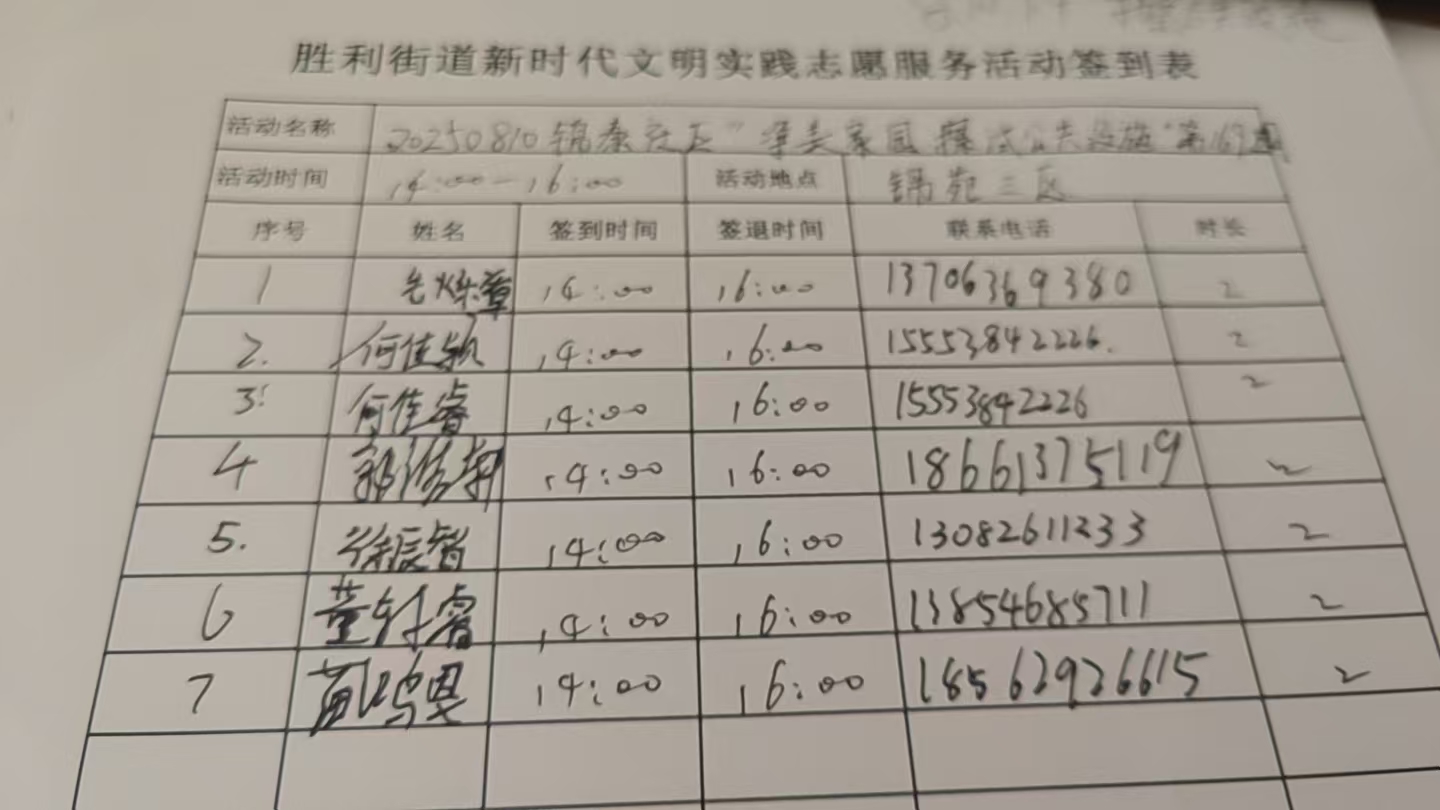 胜利街道新时代文明实践志愿服务活动签到表
活动名称 20250810锦泰社区"洋美家园 擦拭公共设施"第169期
活动时间 14:00-16:00 活动地点 锦苑三区
序号 姓名 签到时间 签退时间 联系电话 时长
1 14:00 16:00 13706369380 2
2. 何佳颖 14:00 16:00 15553842226. 2
3 何佳睿 14:00 16:00 15553842226 2
4 14:00 16:00 18661375119 2
5. 徐辰智 14:00 16:00 13082611233 2
6 董轩睿 14:00 16:00 13854685711 2
7 14:00 16:00 18562926615 2